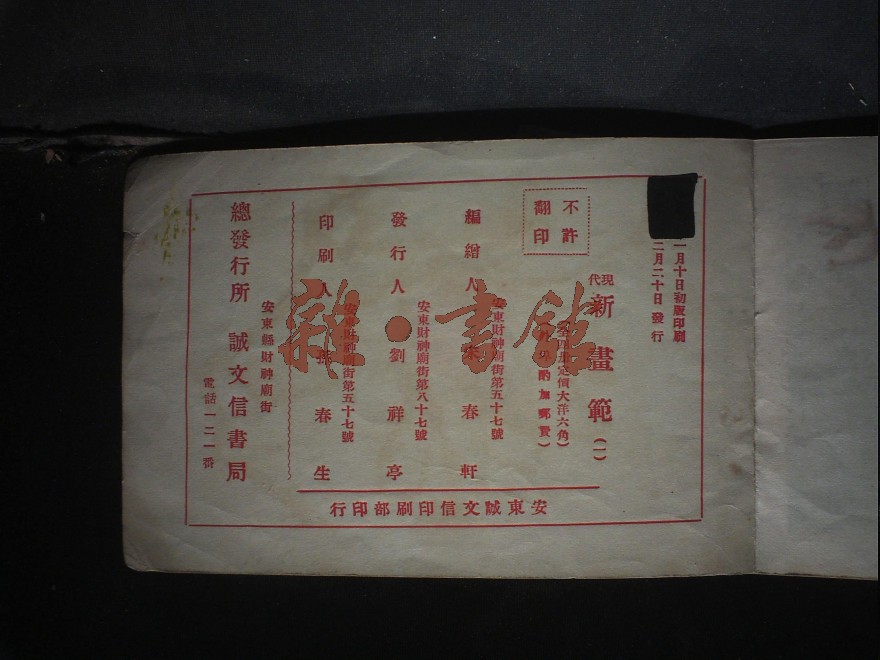 一月十日初版印刷
二月二十日發行
不許
翻印
現代
新畫範(一)
定價大洋六角)
酌加郵費)
編繪人 春軒
安東財神廟街第五十七號
發行人 劉祥亭
安東財神廟街第八十七號
印刷人 春生
安東財神廟街第五十七號
總發行所 誠文信書局
安東縣財神廟街
電話一二一番
安東誠文信印刷部印行
雜·書館